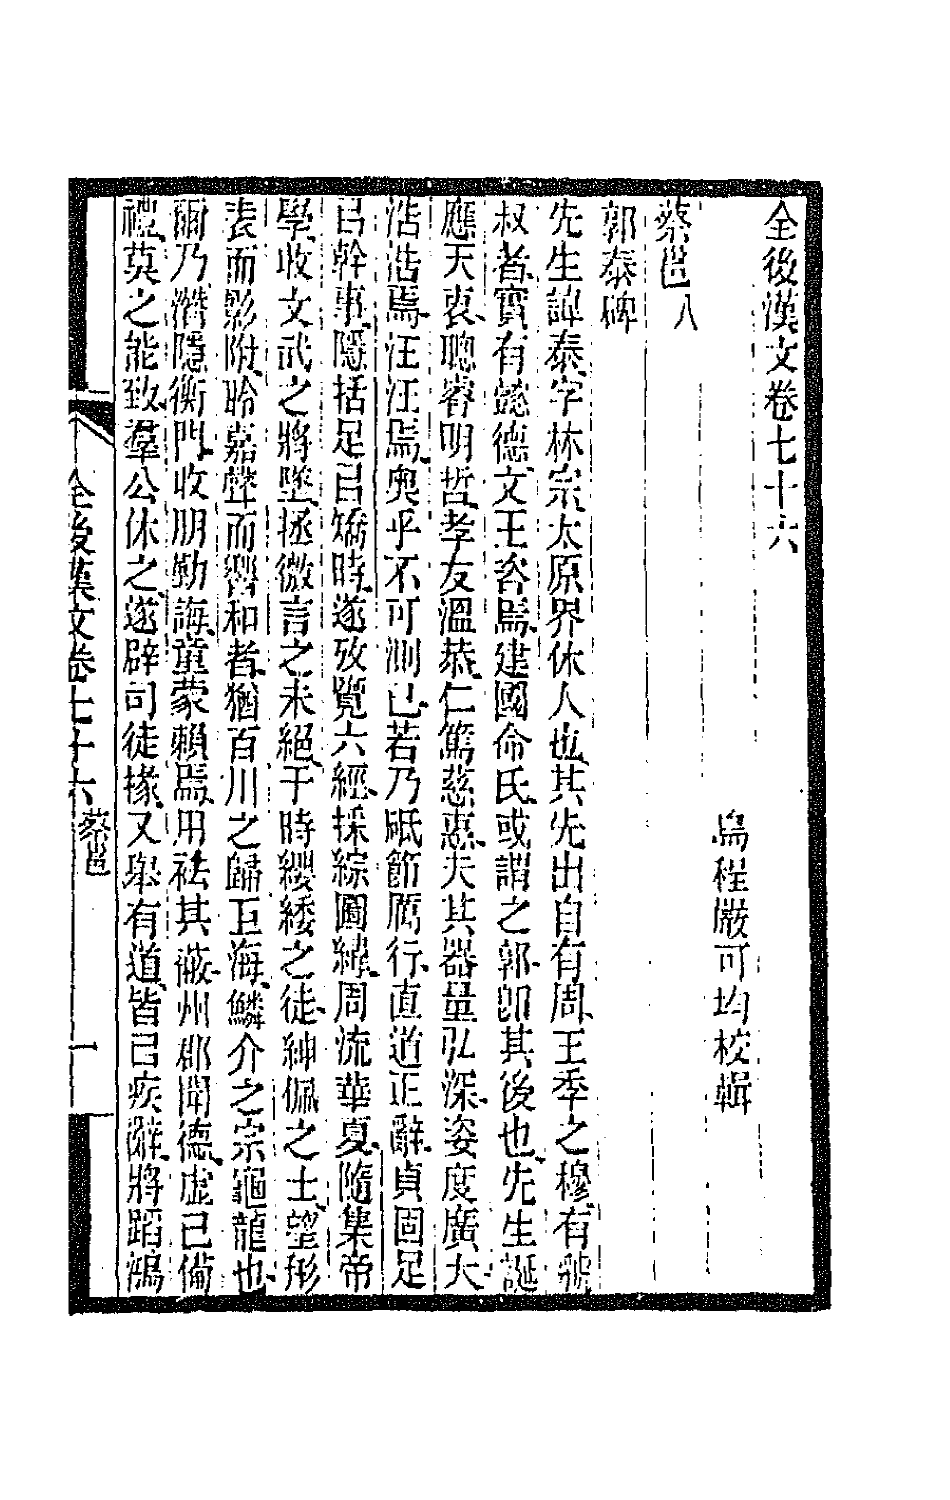 全後漢文卷七十六
烏程嚴可均校輯
蔡邕八
郭泰碑
先生諱泰、字林宗、太原界休人也、其先出自有周、王季之穆、有虢
叔者、寔有懿德、文王咨焉、建國命氏、或謂之郭、卽其後也、先生誕
應天衷、聰睿明哲、孝友溫恭、仁篤慈惠、夫其器量弘深、姿度廣大、
浩浩焉、汪汪焉、奧乎不可測已、若乃砥節厲行、直道正辭、貞固足
㠯幹事、隱括足㠯矯時、遂攷覽六經、採綜圖緯、周流華夏、隨集帝
學、收文武之將墜、拯微言之未絕、于時纓緌之徒、紳佩之士、望形
表而影附、聆嘉聲而響和者、猶百川之歸巨海、鱗介之宗龜龍也、
爾乃潛隱衡門、收朋勤誨、童蒙賴焉、用祛其蔽、州郡聞德、虛己備
禮、莫之能致、羣公休之、遂辟司徒掾、又舉有道、皆㠯疾辭、將蹈鴻
全後漢文卷七十六 蔡邕
一